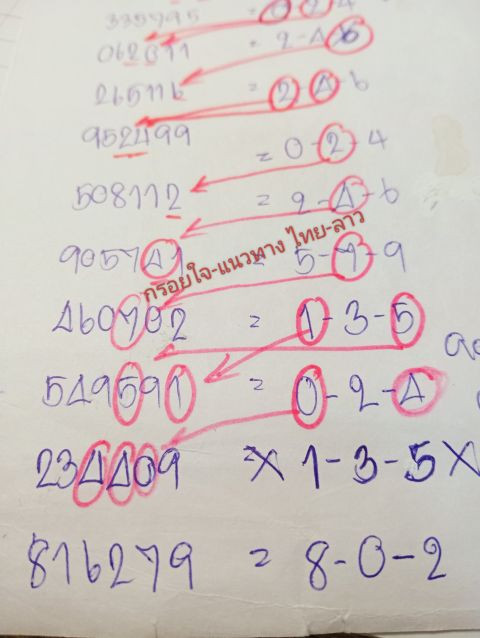 335795 = 0-2-4
062811 = 2-4-6
265116 = 2-4-6
952499 = 0-2-4
508112 = 2-4-6
905741 = 5-7-9
กรอยใจ-แนวทาง ไทย-ลาว
460702 = 1-3-5
549591 = 0-2-4
234409 = X 1-3-5 X
816279 = 8-0-2